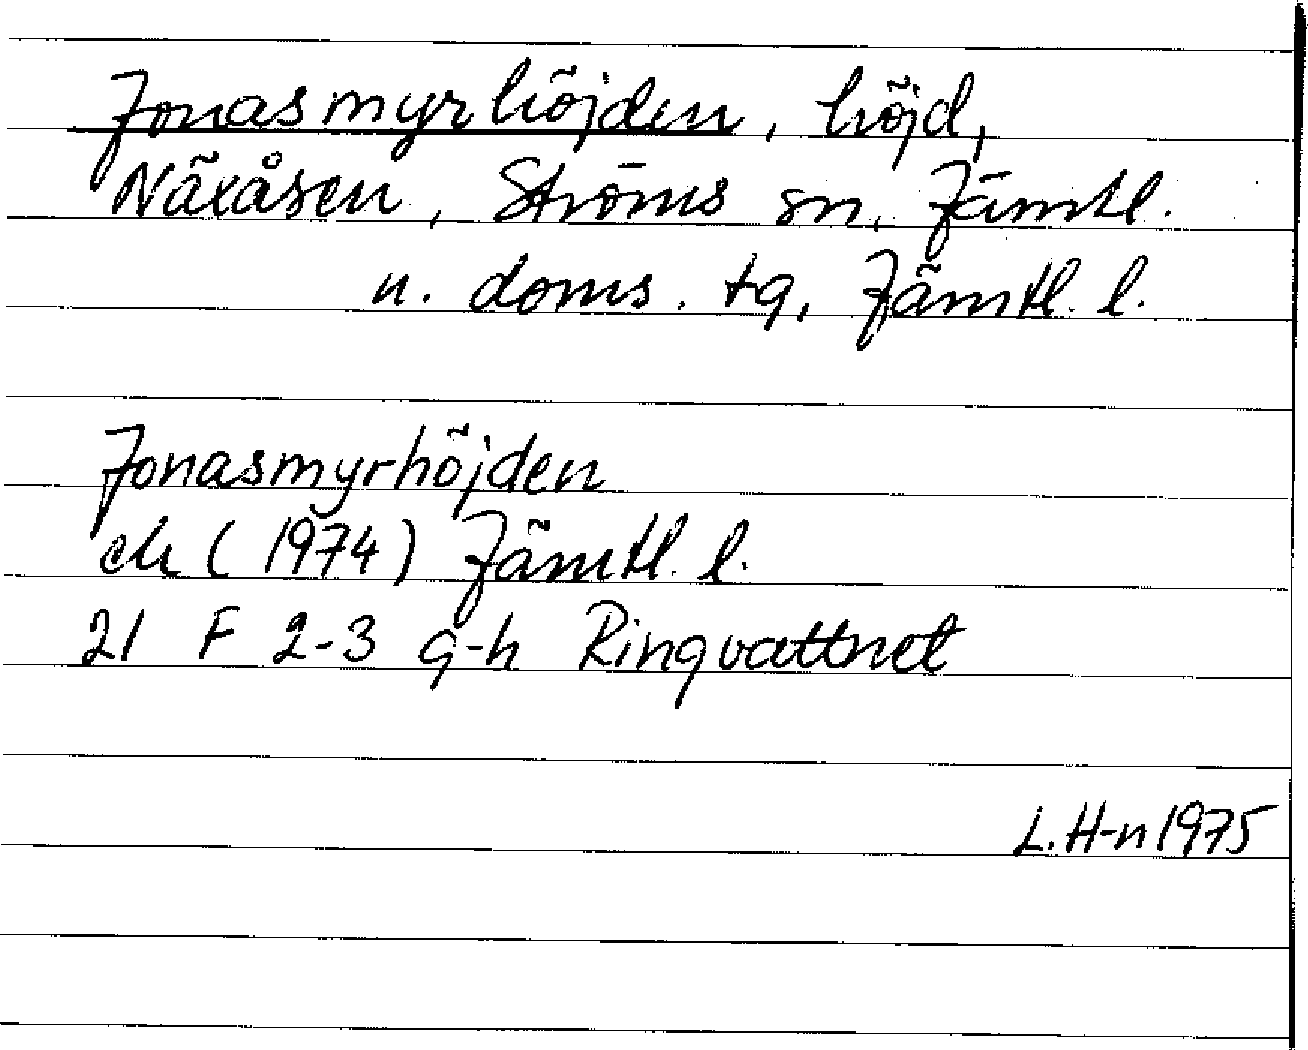 Jonasmyrhöjden, höjd,
Näxåsen, Ströms sn, Jämtl.
n. doms. tg, Jämtl. l.
Jonasmyrhöjden
ek (1974) Jämtl. l.
21 F 2-3 g-h Ringvattnet
L. H-n 1975